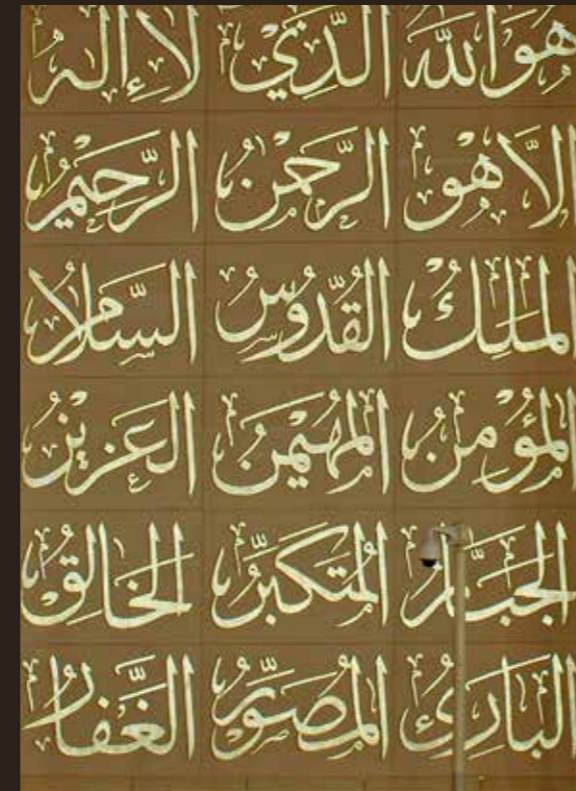 هُوَ اللّٰهُ الَّذِي لَا إِلٰهَ
إِلَّا هُوَ الرَّحْمٰنُ الرَّحِيْمُ
المَلِكُ القُدُّوسُ السَّلَامُ
المُؤْمِنُ المُهَيْمِنُ العَزِيْزُ
الجَبَّارُ المُتَكَبِّرُ الخَالِقُ
البَارِئُ المُصَوِّرُ الغَفَّارُ